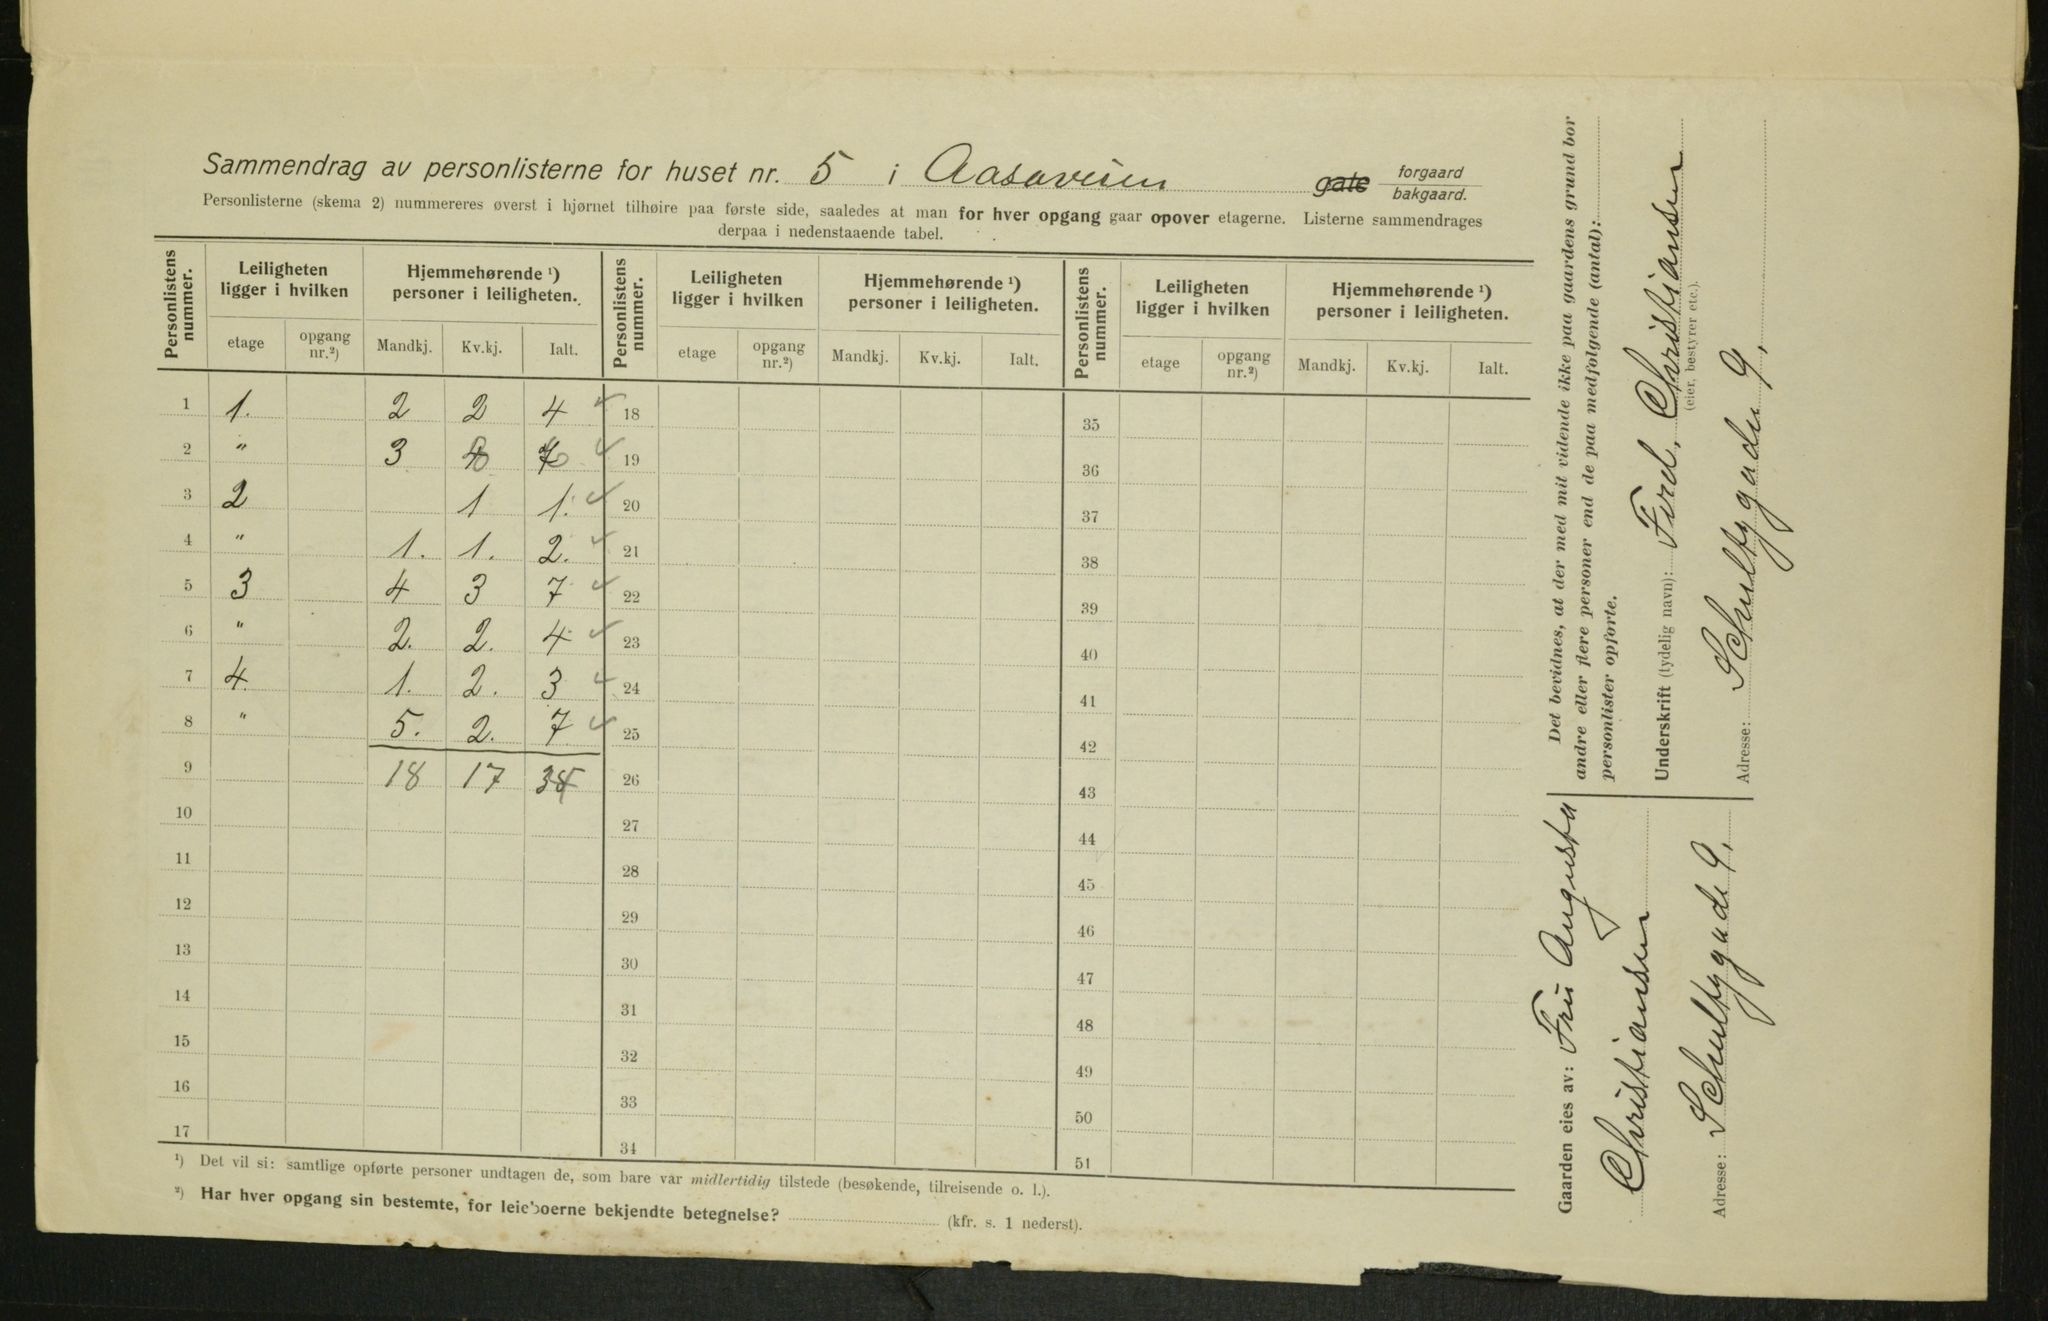 Sammendrag av personlisterne for huset nr. 5 i Aasaveien gate forgaard
bakgaard.
Personlisterne (skema 2) nummereres øverst i hjørnet tilhøire paa første side, saaledes at man for hver opgang gaar opover etagerne. Listerne sammendrages
derpaa i nedenstaaende tabel.
Personlistens nummer. Leiligheten ligger i hvilken Hjemmehørende ¹) personer i leiligheten. Personlistens nummer. Leiligheten ligger i hvilken Hjemmehørende ¹) personer i leiligheten. Personlistens nummer. Leiligheten ligger i hvilken Hjemmehørende ¹) personer i leiligheten.
etage opgang nr.²) Mandkj. Kv.kj. Ialt. etage opgang nr.²) Mandkj. Kv.kj. Ialt. etage opgang nr.²) Mandkj. Kv.kj. Ialt.
1 1. 2 2 4 ✓ 18 35
2 " 3 ✓ 19 36
3 2 1 1. ✓ 20 37
4 " 1. 1. 2. ✓ 21 38
5 3 4 3 7 ✓ 22 39
6 " 2. 2. 4 ✓ 23 40
7 4. 1. 2. 3 ✓ 24 41
8 " 5. 2. 7 ✓ 25 42
9 18 17 26 43
10 27 44
11 28 45
12 29 46
13 30 47
14 31 48
15 32 49
16 33 50
17 34 51
¹) Det vil si: samtlige opførte personer undtagen de, som bare var midlertidig tilstede (besøkende, tilreisende o. l.).
²) Har hver opgang sin bestemte, for leieboerne bekjendte betegnelse? (kfr. s. 1 nederst).
Det bevidnes, at der med mit vidende ikke paa gaardens grund bor
andre eller flere personer end de paa medfølgende (antal):
personlister opførte.
Underskrift (tydelig navn): Ferd. Christiansen
(eier, bestyrer etc.).
Adresse: Schultzgade 9.
Gaarden eies av: Fru Augusta
Christiansen
Adresse: Schultzgade 9.